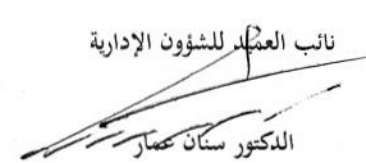 نائب العميد للشؤون الإدارية
الدكتور سنان عمار